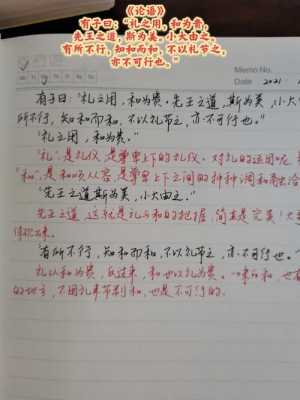 《论语》
有子曰：“礼之用，和为贵，
先王之道，斯为美。小大由之，
有所不行，知和而和，不以礼节之，
亦不可行也。”
Memo No.
Date 2021
有子曰：“礼之用，和为贵。先王之道，斯为美，小大
所不行，知和而和，不以礼节之，亦不可行也。”
“礼之用，和为贵。”
“礼”是礼仪，是尊卑上下的礼仪。对礼的运用呢，
“和”，是和顺从容，是尊卑上下之间的种种调和和
“先王之道斯为美，小大由之。”
先王之道，这就是礼与和的把握，简直是完美！大
有所不行，知和而和，不以礼节之，亦不可行也。”
礼以和为贵，反过来，和也以礼为贵。一味的和，也有
的地方，不用礼来节制和，也是不可行的。